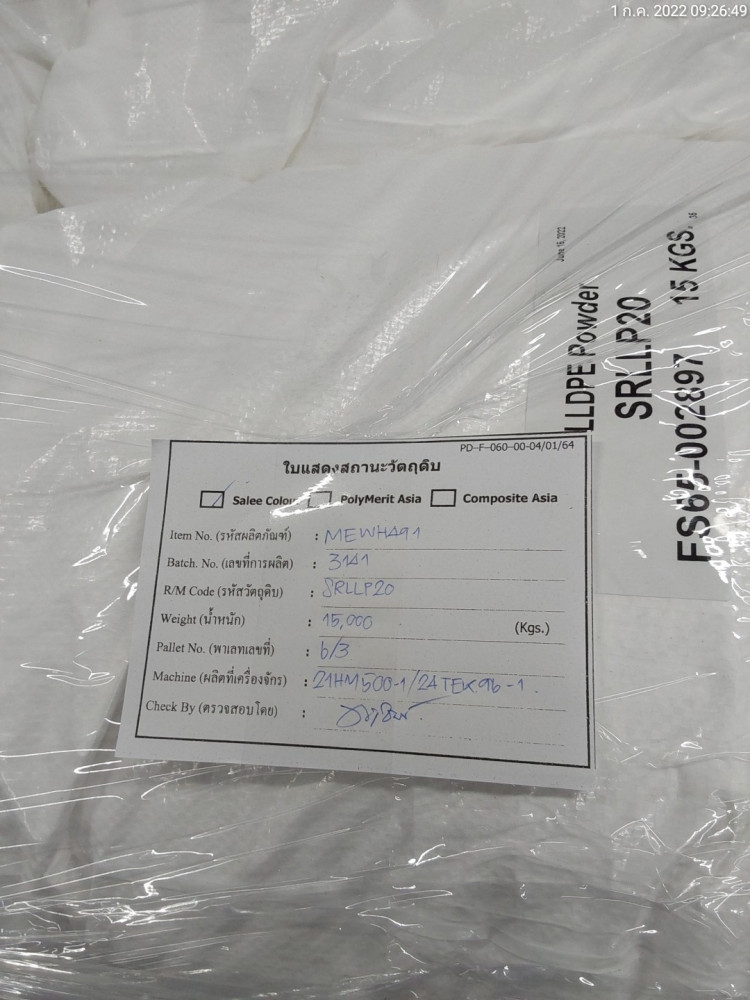 1 ก.ค. 2022 09:26:49
June 16, 2022
LLDPE Powder
SRLLP20
FS65-002897 15 KGS.
PD-F-060-00-04/01/64
ใบแสดงสถานะวัตถุดิบ
Salee Colour PolyMerit Asia Composite Asia
Item No. (รหัสผลิตภัณฑ์) : MEWH491
Batch. No. (เลขที่การผลิต) : 3141
R/M Code (รหัสวัตถุดิบ) : SRLLP20
Weight (น้ำหนัก) : 15,000 (Kgs.)
Pallet No. (พาเลทเลขที่) : 6/3
Machine (ผลิตที่เครื่องจักร) : 21HM500-1/24TEK96-1.
Check By (ตรวจสอบโดย) :